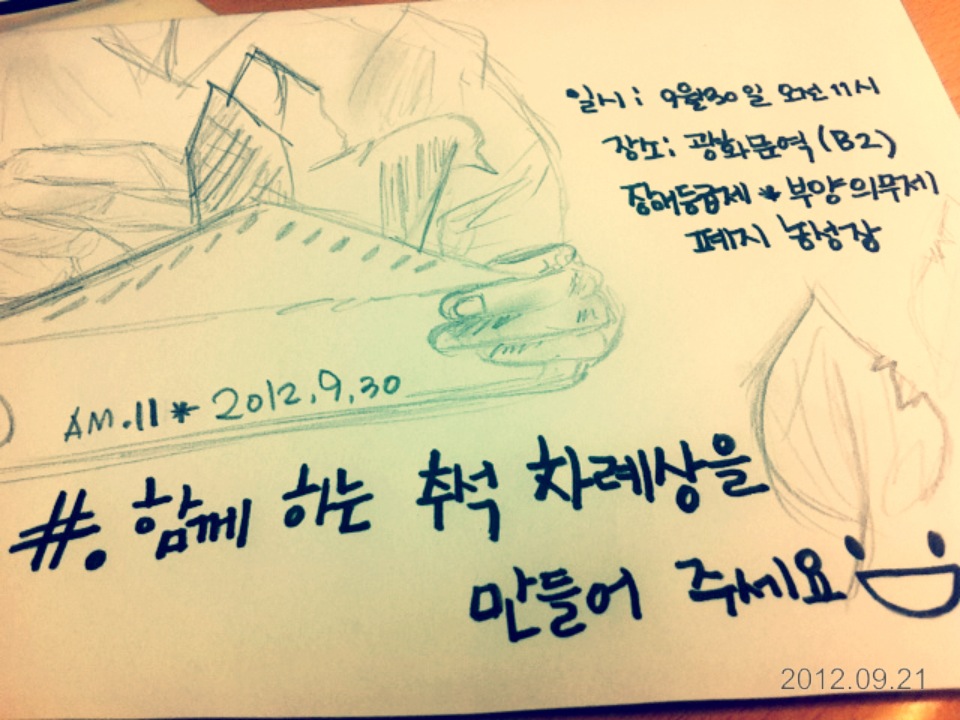 일시: 9월30일 오전 11시
장소: 광화문역(B2)
장애등급제 * 부양의무제
폐지 농성장
AM.11 * 2012.9.30
#. 함께 하는 추석 차례상을
만들어 주세요
2012.09.21